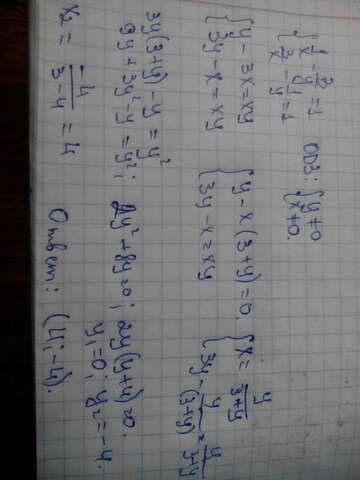 { 1/x - 3/y = 1
{ 3/x - 1/y = 1 ОДЗ: { y ≠ 0 { x ≠ 0.
{ y - 3x = xy { y - x(3+y) = 0. { x = y/(3+y)
{ 3y - x = xy { 3y - x = xy { 3y - y/(3+y) =
3y(3+y) - y = y²
9y + 3y² - y = y²; 2y² + 8y = 0; 2y(y+4) = 0.
y₁ = 0; y₂ = -4.
x₂ = -4/(3-4) = 4 Ответ: (4; -4).